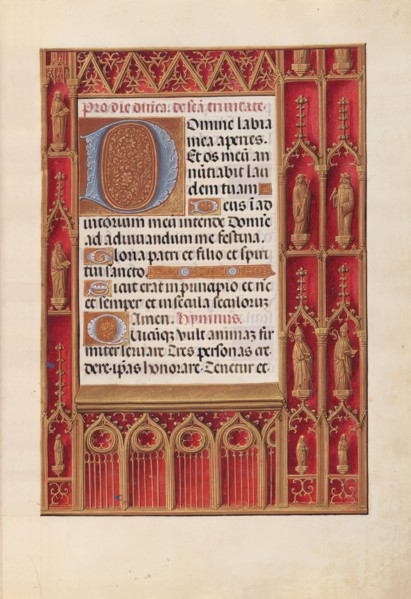 Pro die dñica. de scã trinitate.
Domine labia
mea aperies.
Et os meũ an
nũtiabit lau
dem tuam
Deus ĩ ad
iutorium meũ intende Domĩe
ad adiuuandum me festina.
Gloria patri et filio et spiri
tui sancto.
Sicut erat in principio et nũc
et semper et in secula seculoruz
Amen. Hymnus.
Quicũqz vult animaz fir
miter seruare Tres personas cre
dere ip̃as honorare Tenetur et